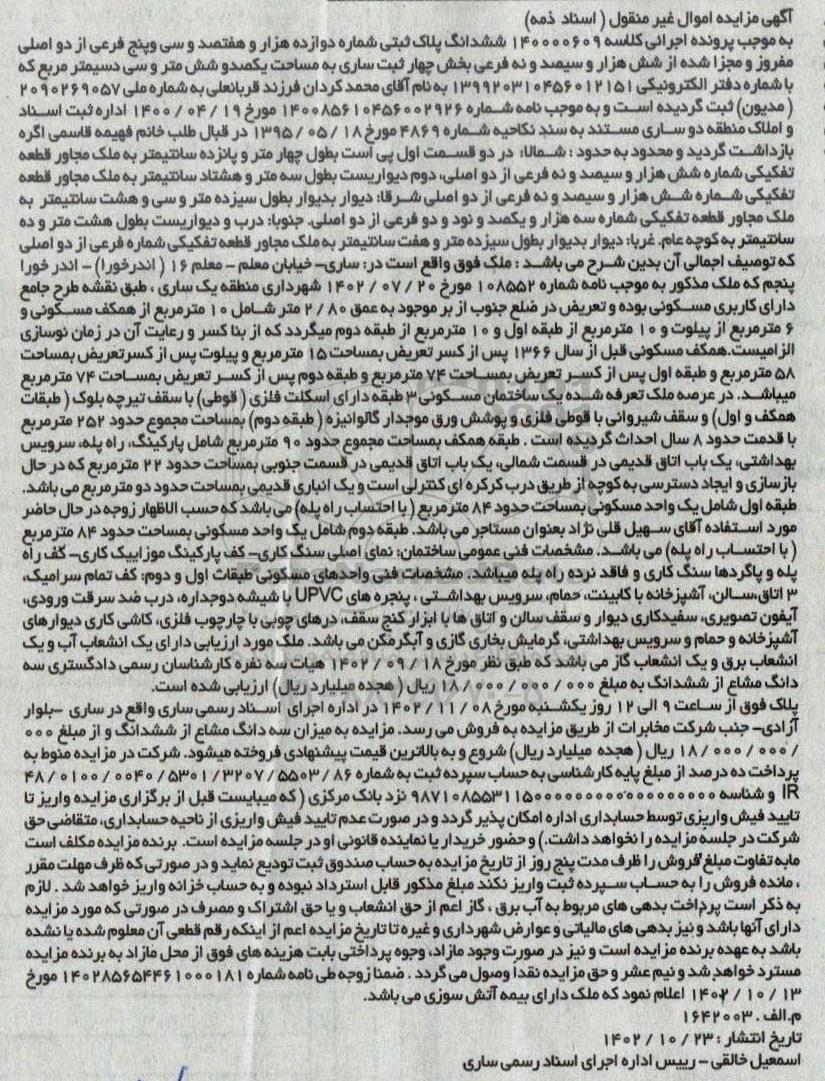 آگهی مزایده اموال غیر منقول ( اسناد ذمه)
به موجب پرونده اجرائی کلاسه ۱۴۰۰۰۰۶۰۹ ششدانگ پلاک ثبتی شماره دوازده هزار و هفتصد و سی وپنج فرعی از دو اصلی
مفروز و مجزا شده از شش هزار و سیصد و نه فرعی بخش چهار ثبت ساری به مساحت یکصدو شش متر و سی دسیمتر مربع که
با شماره دفتر الکترونیکی ۱۳۹۹۲۰۳۱۰۴۵۶۰۱۲۱۵۱ به نام آقای محمد کردان فرزند قربانعلی به شماره ملی ۲۰۹۰۲۶۹۰۵۷
( مدیون) ثبت گردیده است و به موجب نامه شماره ۱۴۰۰۸۵۶۱۰۴۵۶۰۰۲۹۲۶ مورخ ۱۹ / ۰۴ / ۱۴۰۰ اداره ثبت اسناد
و املاک منطقه دو ساری مستند به سند نکاحیه شماره ۴۸۶۹ مورخ ۱۸ / ۰۵ / ۱۳۹۵ در قبال طلب خانم فهیمه قاسمی اگره
بازداشت گردید و محدود به حدود : شمالا: در دو قسمت اول پی است بطول چهار متر و پانزده سانتیمتر به ملک مجاور قطعه
تفکیکی شماره شش هزار و سیصد و نه فرعی از دو اصلی، دوم دیواریست بطول سه متر و هشتاد سانتیمتر به ملک مجاور قطعه
تفکیکی شماره شش هزار و سیصد و نه فرعی از دو اصلی شرقا: دیوار بدیوار بطول سیزده متر و سی و هشت سانتیمتر به
ملک مجاور قطعه تفکیکی شماره سه هزار و یکصد و نود و دو فرعی از دو اصلی. جنوبا: درب و دیواریست بطول هشت متر و ده
سانتیمتر به کوچه عام. غربا: دیوار بدیوار بطول سیزده متر و هفت سانتیمتر به ملک مجاور قطعه تفکیکی شماره فرعی از دو اصلی
که توصیف اجمالی آن بدین شرح می باشد : ملک فوق واقع است در: ساری– خیابان معلم – معلم ۱۶ ( اندرخورا) – اندر خورا
پنجم که ملک مذکور به موجب نامه شماره ۱۰۸۵۵۲ مورخ ۲۰ / ۰۷ / ۱۴۰۲ شهرداری منطقه یک ساری ، طبق نقشه طرح جامع
دارای کاربری مسکونی بوده و تعریض در ضلع جنوب از بر موجود به عمق ۸۰ / ۲ متر شامل ۱۰ مترمربع از همکف مسکونی و
۶ مترمربع از پیلوت و ۱۰ مترمربع از طبقه اول و ۱۰ مترمربع از طبقه دوم میگردد که از بنا کسر و رعایت آن در زمان نوسازی
الزامیست.همکف مسکونی قبل از سال ۱۳۶۶ پس از کسر تعریض بمساحت ۱۵ مترمربع و پیلوت پس از کسرتعریض بمساحت
۵۸ مترمربع و طبقه اول پس از کسر تعریض بمساحت ۷۴ مترمربع و طبقه دوم پس از کسر تعریض بمساحت ۷۴ مترمربع
میباشد. در عرصه ملک تعرفه شده یک ساختمان مسکونی ۳ طبقه دارای اسکلت فلزی ( قوطی) با سقف تیرچه بلوک ( طبقات
همکف و اول) و سقف شیروانی با قوطی فلزی و پوشش ورق موجدار گالوانیزه ( طبقه دوم) بمساحت مجموع حدود ۲۵۲ مترمربع
با قدمت حدود ۸ سال احداث گردیده است . طبقه همکف بمساحت مجموع حدود ۹۰ مترمربع شامل پارکینگ، راه پله، سرویس
بهداشتی، یک باب اتاق قدیمی در قسمت شمالی، یک باب اتاق قدیمی در قسمت جنوبی بمساحت حدود ۲۲ مترمربع که در حال
بازسازی و ایجاد دسترسی به کوچه از طریق درب کرکره ای کنترلی است و یک انباری قدیمی بمساحت حدود دو مترمربع می باشد.
طبقه اول شامل یک واحد مسکونی بمساحت حدود ۸۴ مترمربع ( با احتساب راه پله) می باشد که حسب الاظهار زوجه در حال حاضر
مورد استفاده آقای سهیل قلی نژاد بعنوان مستاجر می باشد. طبقه دوم شامل یک واحد مسکونی بمساحت حدود ۸۴ مترمربع
( با احتساب راه پله) می باشد. مشخصات فنی عمومی ساختمان: نمای اصلی سنگ کاری– کف پارکینگ موزاییک کاری– کف راه
پله و پاگردها سنگ کاری و فاقد نرده راه پله میباشد. مشخصات فنی واحدهای مسکونی طبقات اول و دوم: کف تمام سرامیک،
۳ اتاق،سالن، آشپزخانه با کابینت، حمام، سرویس بهداشتی ، پنجره های UPVC با شیشه دوجداره، درب ضد سرقت ورودی،
آیفون تصویری، سفیدکاری دیوار و سقف سالن و اتاق ها با ابزار کنج سقف، درهای چوبی با چارچوب فلزی، کاشی کاری دیوارهای
آشپزخانه و حمام و سرویس بهداشتی، گرمایش بخاری گازی و آبگرمکن می باشد. ملک مورد ارزیابی دارای یک انشعاب آب و یک
انشعاب برق و یک انشعاب گاز می باشد که طبق نظر مورخ ۱۸ / ۰۹ / ۱۴۰۲ هیات سه نفره کارشناسان رسمی دادگستری سه
دانگ مشاع از ششدانگ به مبلغ ۰۰۰ / ۰۰۰ / ۰۰۰ / ۱۸ ریال ( هجده میلیارد ریال) ارزیابی شده است.
پلاک فوق از ساعت ۹ الی ۱۲ روز یکشنبه مورخ ۰۸ / ۱۱ / ۱۴۰۲ در اداره اجرای اسناد رسمی ساری واقع در ساری –بلوار
آزادی– جنب شرکت مخابرات از طریق مزایده به فروش می رسد. مزایده به میزان سه دانگ مشاع از ششدانگ و از مبلغ ۰۰۰
/ ۰۰۰ / ۰۰۰ / ۱۸ ریال ( هجده میلیارد ریال) شروع و به بالاترین قیمت پیشنهادی فروخته میشود. شرکت در مزایده منوط به
پرداخت ده درصد از مبلغ پایه کارشناسی به حساب سپرده ثبت به شماره ۸۶ / ۵۵۰۳ / ۳۲۰۷ / ۵۳۰۱ / ۰۰۴۰ / ۰۱۰۰ / ۴۸
IR و شناسه ۹۸۷۱۰۸۵۵۳۱۱۵۰۰۰۰۰۰۰۰۰۰۰۰۰۰۰۰۰۰ نزد بانک مرکزی ( که میبایست قبل از برگزاری مزایده واریز تا
تایید فیش واریزی توسط حسابداری اداره امکان پذیر گردد و در صورت عدم تایید فیش واریزی از ناحیه حسابداری، متقاضی حق
شرکت در جلسه مزایده را نخواهد داشت.) و حضور خریدار یا نماینده قانونی او در جلسه مزایده است. برنده مزایده مکلف است
مابه تفاوت مبلغ فروش را ظرف مدت پنج روز از تاریخ مزایده به حساب صندوق ثبت تودیع نماید و در صورتی که ظرف مهلت مقرر
، مانده فروش را به حساب سپرده ثبت واریز نکند مبلغ مذکور قابل استرداد نبوده و به حساب خزانه واریز خواهد شد . لازم
به ذکر است پرداخت بدهی های مربوط به آب برق ، گاز اعم از حق انشعاب و یا حق اشتراک و مصرف در صورتی که مورد مزایده
دارای آنها باشد و نیز بدهی های مالیاتی و عوارض شهرداری و غیره تا تاریخ مزایده اعم از اینکه رقم قطعی آن معلوم شده یا نشده
باشد به عهده برنده مزایده است و نیز در صورت وجود مازاد، وجوه پرداختی بابت هزینه های فوق از محل مازاد به برنده مزایده
مسترد خواهد شد و نیم عشر و حق مزایده نقدا وصول می گردد . ضمنا زوجه طی نامه شماره ۱۴۰۲۸۵۶۵۴۴۶۱۰۰۰۱۸۱ مورخ
۱۳ / ۱۰ / ۱۴۰۲ اعلام نمود که ملک دارای بیمه آتش سوزی می باشد.
م.الف . ۱۶۴۲۰۰۳
تاریخ انتشار : ۲۳ / ۱۰ / ۱۴۰۲
اسمعیل خالقی – رییس اداره اجرای اسناد رسمی ساری